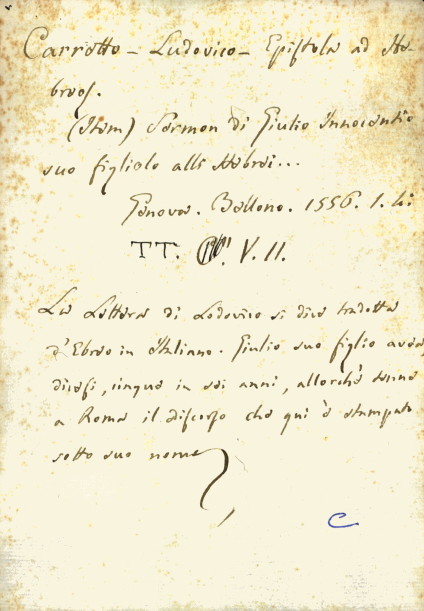 Carretto - Ludovico - Epistola ad He-
breos.
(Item) Sermon di Giulio Innocentio
suo figliolo alli Hebrei...
Genova. Bellono. 1556. 1. li:
TT. V. 11.
La Lettera di Lodovico si dice tradotta
d'Ebreo in Italiano. Giulio suo figlio avea,
dicesi, cinque in sei anni, allorchè tenne
a Roma il discorso che qui è stampato
sotto suo nome
C